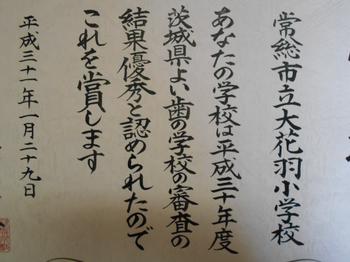 常総市立大花羽小学校
あなたの学校は平成三十年度
茨城県よい歯の学校の審査の
結果優秀と認められたので
これを賞します
平成三十一年一月二十九日